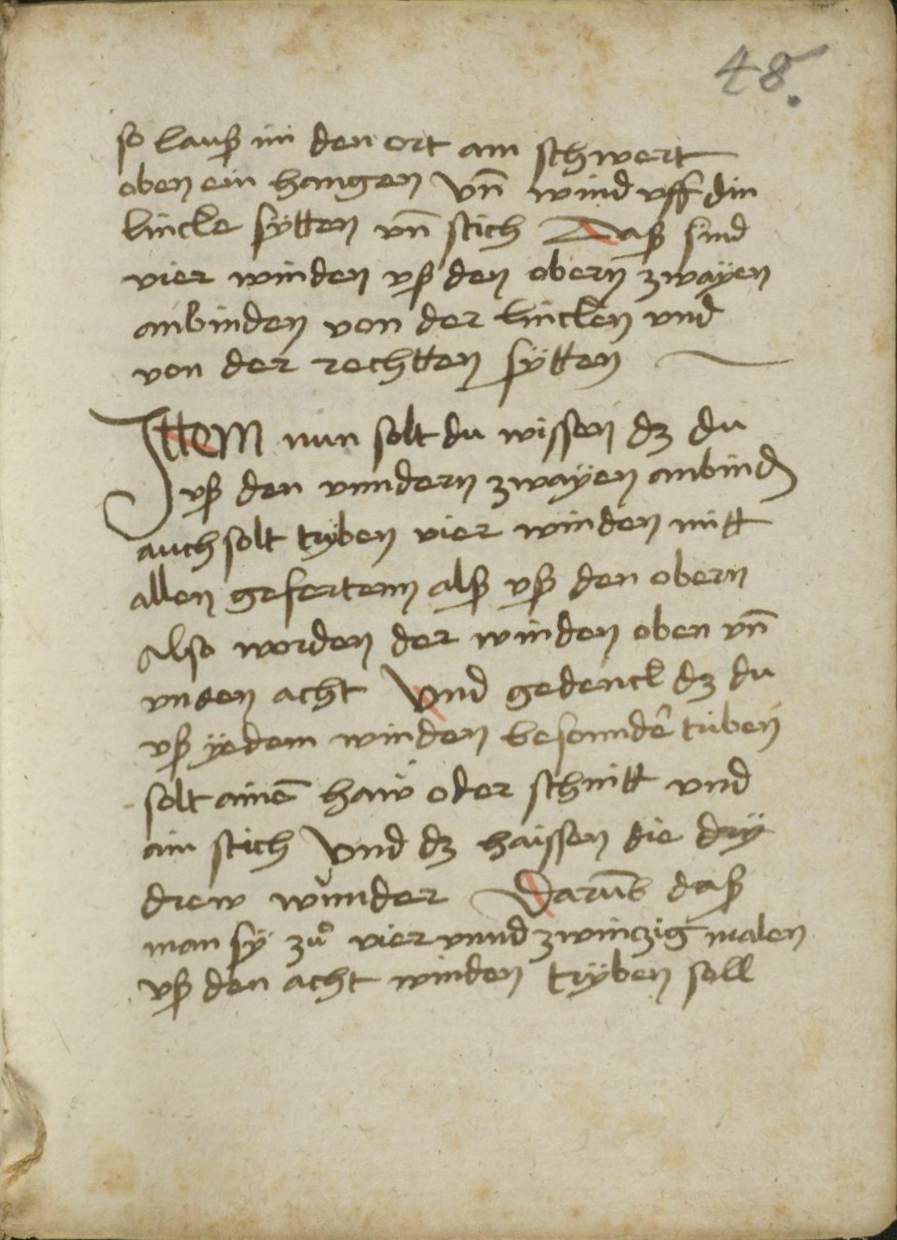 48.
so lauß im den ort am schwert
oben ein hangen vn̄ wind vff din
lincke sÿtten vn̄ stich Daß sind
vier winden vß den obern zwaÿen
anbinden von der lincken vnd
von der rechtten sÿtten
Jttem nun solt du wissen dz du
vß den vnndern zwaÿen anbinden
auch solt trÿben vier winden mitt
allen gefertenn alß vß den obern
Also worden der winden oben vn̄
vnden acht Vnd gedenck dz du
vß ÿedem winden besonnder triben
solt ainē haw oder schnitt vnd
ain stich Vnd dz haissen die drÿ
drew wunder Darūb daß
man sÿ zuͦ vier vnnd zwinzig malen
vß den acht winden trÿben soll